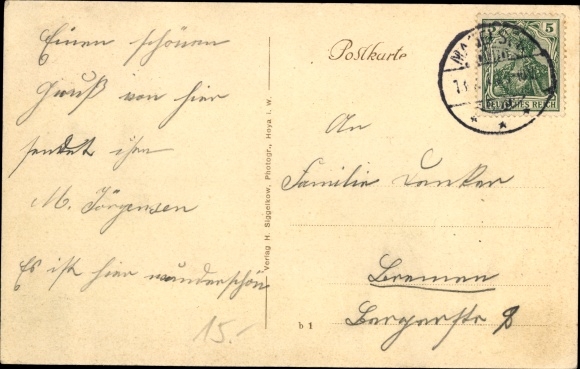 Einen schönen
Gruß von hier
sendet ihn
M. Jörgensen
Es ist hier wunderschön
15.-
Verlag H. Siggelkow, Photogr., Hoya i. W.
b 1
Postkarte
5
DEUTSCHES REICH
An
Familie
Bremen